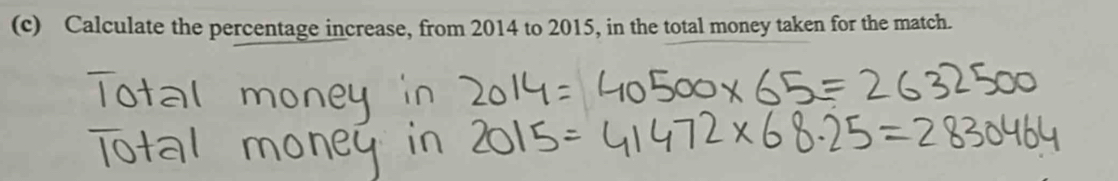 (c) Calculate the percentage increase, from 2014 to 2015, in the total money taken for the match.
Total money in 2014 = 40500 x 65 = 2632500
Total money in 2015 = 41472 x 68.25 = 2830464